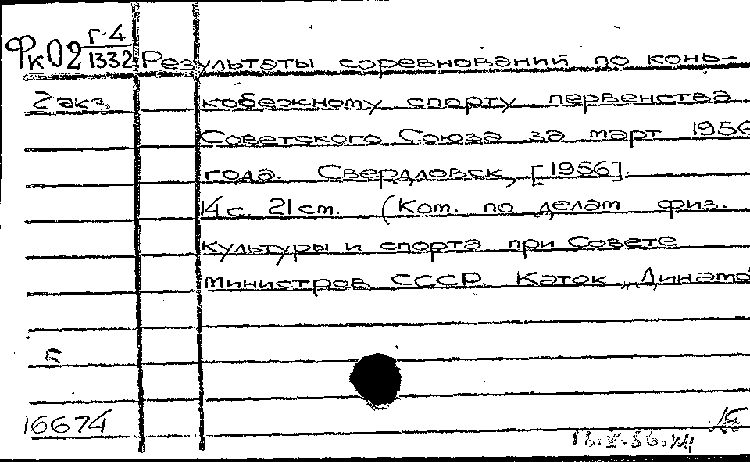 Фк02 Г-4/1332 Результаты соревнований по конь-
2 экз. кобежному спорту первенства
Советского Союза за март 1956
года. Свердловск, [1956].
14 с. 21 cm. (Ком. по делам физ.
культуры и спорта при Совете
министров СССР. Каток „Динамо
п
16674